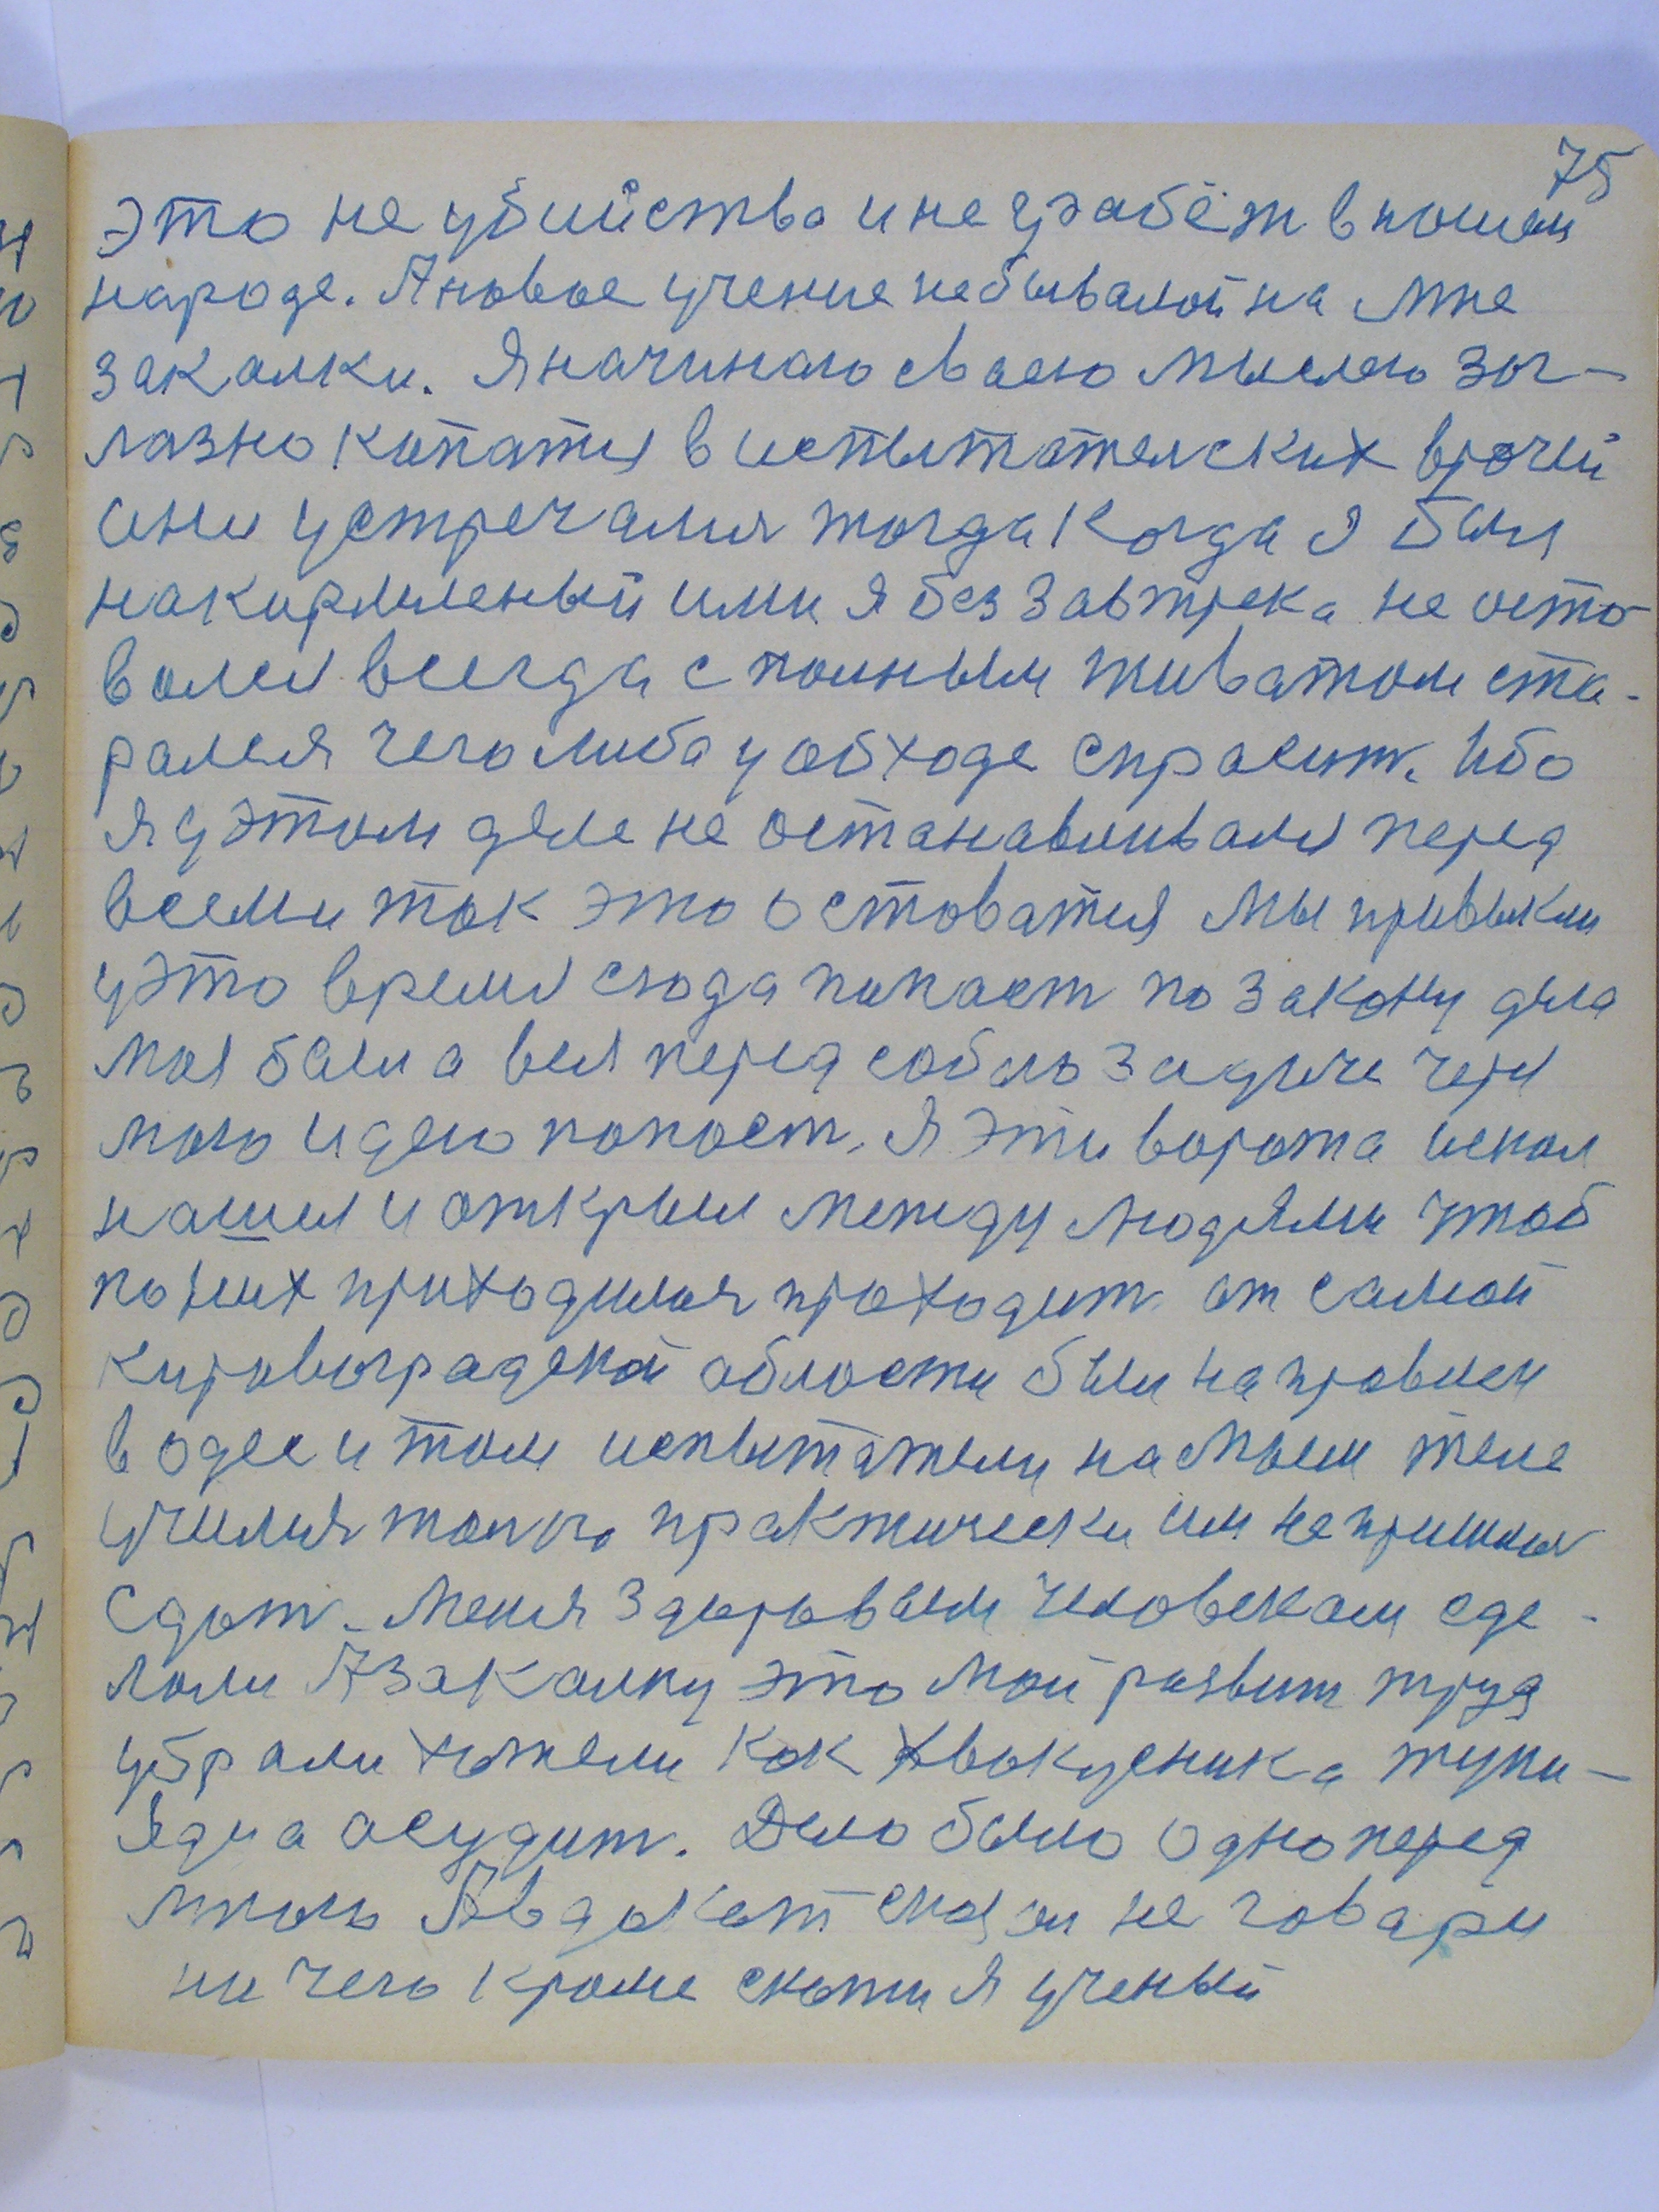 75
это не убийство и не грабёт в ношем
народе. А новое учение небывалой на мне
закалки. Я начинаю сваею мыслею заг-
лазно капатся в испытательских врачей
они устречался тогда когда я был
накормленый ими я без завтрека не осто-
вался всегда с полным животом ста-
рался чего либо у обходе спрасит. Ибо
я у этом деле не останавливался перед
всеми так это остоватся мы привыкли
у это время сюда попаст по закону дела
моя была вся перед собою задиче через
мою идею попаст. Я эти ворота искал
нашел и открыл между людями чтоб
по них приходился проходит от самой
кировоградской области был направлен
в одес и там испытатели на моем теле
учился толко практически им не пришлося
сдат. Меня здоровым человеком сде-
лали А закалку это мой развит труд
убрали хотели как хвокусника туни-
ядца асудит. Дело было одно перед
мною Авдакат сказал не говари
ни чего кроме скажи я ученый